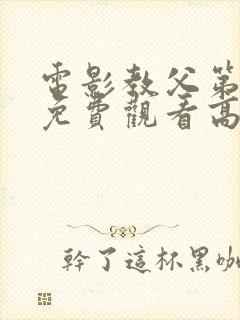 電影教父第
免費觀看高
幹了這杯黑咖